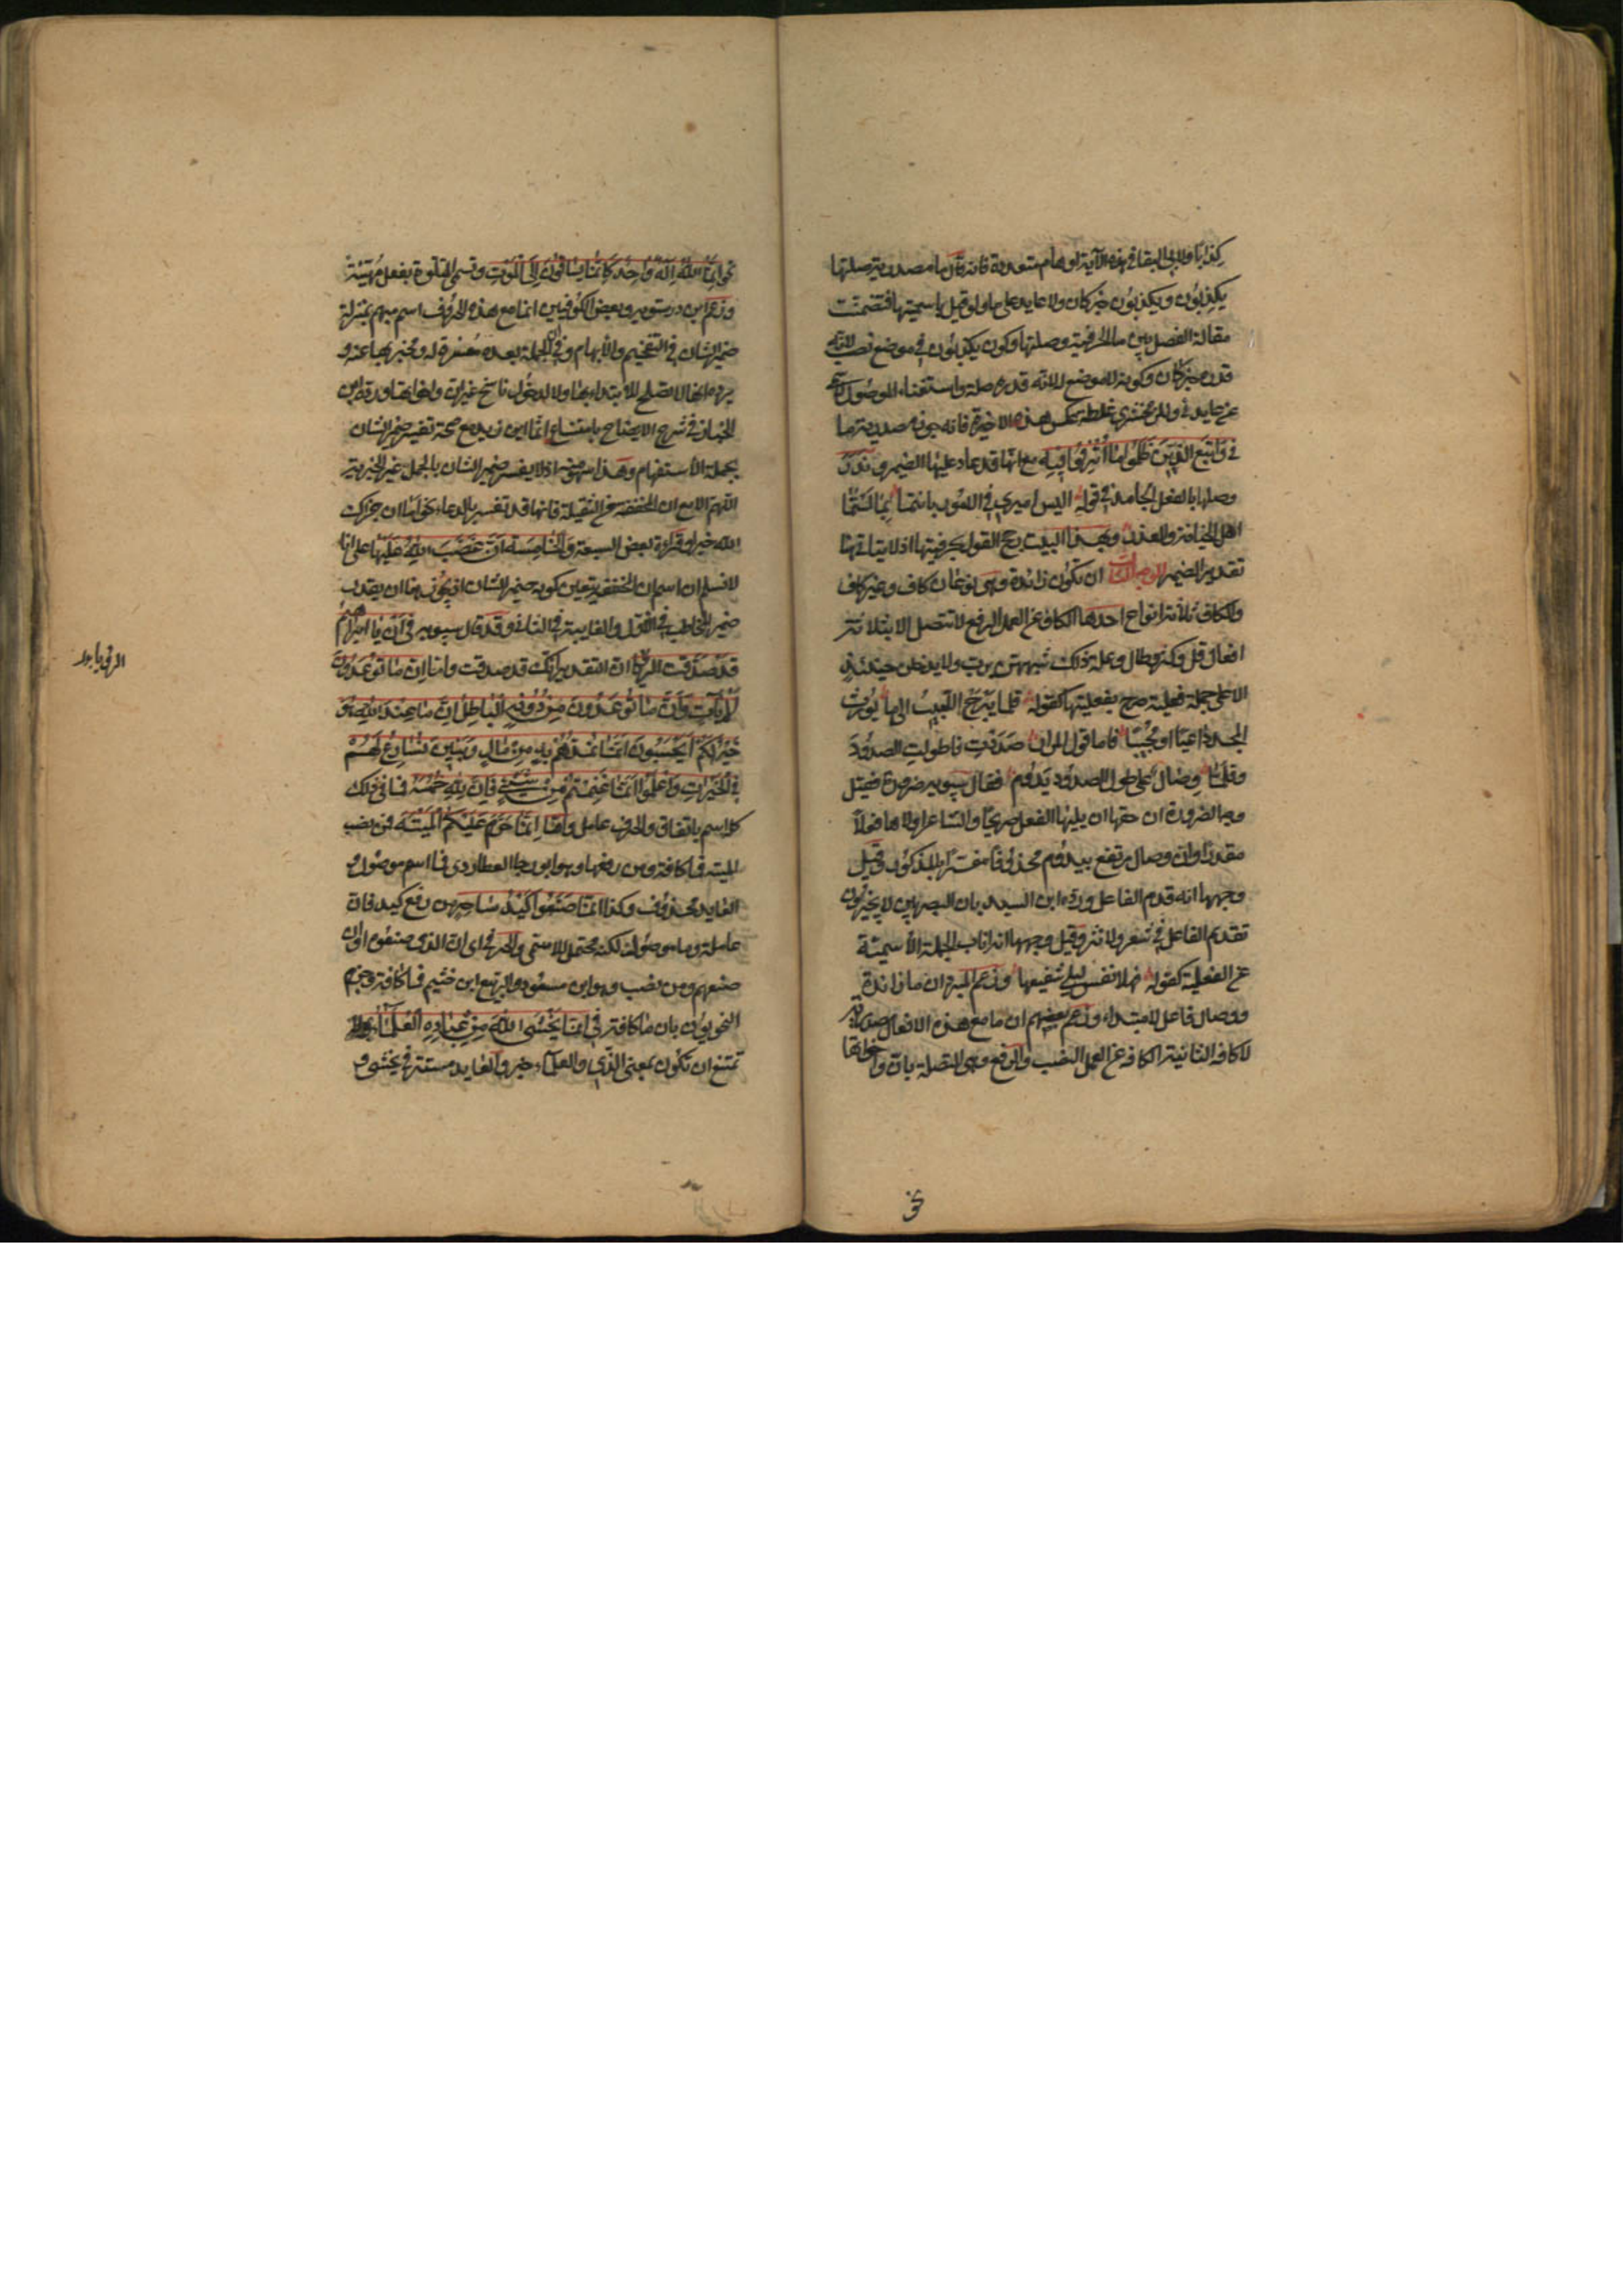 كذابا ولابي البقا في هذه الآية اوهام متعددة فانه قال ما مصدرية صلتها
يكذبون ويكذبون خبر كان ولا عايد على ما ولو قيل باسميتها فتضمنت
مقالة الفصل بين ما الحرفية وصلتها وكون يكذبون في موضع نصب لانه
قدره خبر كان وكونه لا موضع له لانه قدره صلة ما واستغناء الموصول
عن عايد وللزمخشري غلطة عكس هذه الاخيرة فانه جوز مصدرية ما
في واتبع الذين ظلموا ما اترفوا فيه مع انها قد عاد عليها الضمير وندر
وصلها بالفعل الجامد في قوله اليس اميري في الامور بانتما بما لستما
اهل الخيانة والغدر وبهذا البيت رجح القول بحرفيتها اذ لا يتاتى هنا
تقدير الضمير الوجه الثالث ان تكون زائدة وهي نوعان كاف وغير كاف
والكاف ثلاثة انواع احدها الكاف عن العمل الرفع لا تتصل الا بثلاثة
افعال قل وكثر وطال وعلة ذلك شبههن برب ولا يدخلن حينئذ
الا على جملة فعلية صرح بفعليتها كقوله قلما يبرح اللبيب الى ما يورث
المجد داعيا او مجيبا فاما قول المرار صددت فاطولت الصدود
وقلما وصال على طول الصدود يدوم فقال سيبويه ضرورة فقيل
وجه الضرورة ان حقها ان يليها الفعل صريحا والشاعر اولاها فعلا
مقدرا وان وصال يرتفع بيدوم محذوفا مفسرا بالمذكور وقيل
وجهها انه قدم الفاعل ورده ابن السيد بان البصريين لا يجيزون
تقديم الفاعل في شعر ولا نثر وقيل وجهها انه اناب الجملة الاسمية
عن الفعلية كقوله فهلا نفس ليلى شفيعها وزعم المبرد ان ما زائدة
ووصال فاعل لا مبتداء وزعم بعضهم ان ما مع هذه الافعال مصدرية
لا كافة الثانية الكافة عن العمل النصب والرفع وهي المتصلة بان واخواتها
نحو انما الله اله واحد كانما يساقون الى الموت وتسمى المتلوة بفعل مهيئة
وزعم ابن درستويه وبعض الكوفيين ان ما مع هذه الحروف اسم مبهم بمنزلة
ضمير الشان في التفخيم والابهام وفي ان الجملة بعده مفسرة له ومخبر بها عنه و
يرده انها لا تصلح للابتداء بها ولا لدخول ناسخ غير ان واخواتها ورده ابن
الخباز في شرح الايضاح بامتناع انما اين زيد مع صحة تفسير ضمير الشان
بجملة الاستفهام وهذا سهو منه اذ لا يفسر ضمير الشان بالجمل غير الخبرية
اللهم الا مع ان المخففة من الثقيلة فانها قد تفسر بالدعاء نحو اما ان جزاك
الله خيرا وقراءة بعض السبعة والخامسة ان غضب الله عليها على انا
لا نسلم ان اسم ان المخففة يتعين كونه ضمير الشان اذ يجوز هنا ان يقدر
ضمير المخاطب في الاول والغايبة في الثاني وقد قال سيبويه في ان يا ابراهيم
قد صدقت الرؤيا ان التقدير انك قد صدقت واما ان ما توعدون
لآت وان ما توعدون من دونه الباطل ان ما عند الله هو
خير لكم ايحسبون انما نمدهم به من مال وبنين نسارع لهم
في الخيرات واعلموا انما غنمتم من شيء فان لله خمسه فما في ذلك
كله اسم باتفاق والحرف عامل واما انما حرم عليكم الميتة فمن نصب
الميتة فما كافة ومن رفعها وهو ابو رجا العطاردي فما اسم موصول و
العايد محذوف وكذا انما صنعوا كيد ساحر من رفع كيد فان
عاملة وما موصولة لكنه محتمل للاسمي والحرفي اي ان الذي صنعوه او ان
صنعهم ومن نصب وهو ابن مسعود والربيع ابن خثيم فما كافة وجزم
النحويون بان ما كافة في انما يخشى الله من عباده العلماء ولا
تمتنع ان تكون بمعنى الذي والعلماء خبر والعايد مستتر في يخشى و